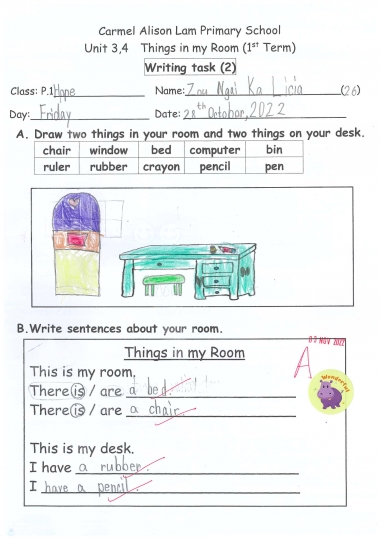 Carmel Alison Lam Primary School
Unit 3,4 Things in my Room (1st Term)
Writing task (2)
Class: P.1 Hope Name: Zou Ngai Ka Licia (26)
Day: Friday Date: 28th Octobar, 2022
A. Draw two things in your room and two things on your desk.
chair window bed computer bin
ruler rubber crayon pencil pen
B. Write sentences about your room.
03 NOV 2022
Things in my Room
A
Wonderful
This is my room.
There is / are a bed.
There is / are a chair.
This is my desk.
I have a rubber.
I have a pencil.